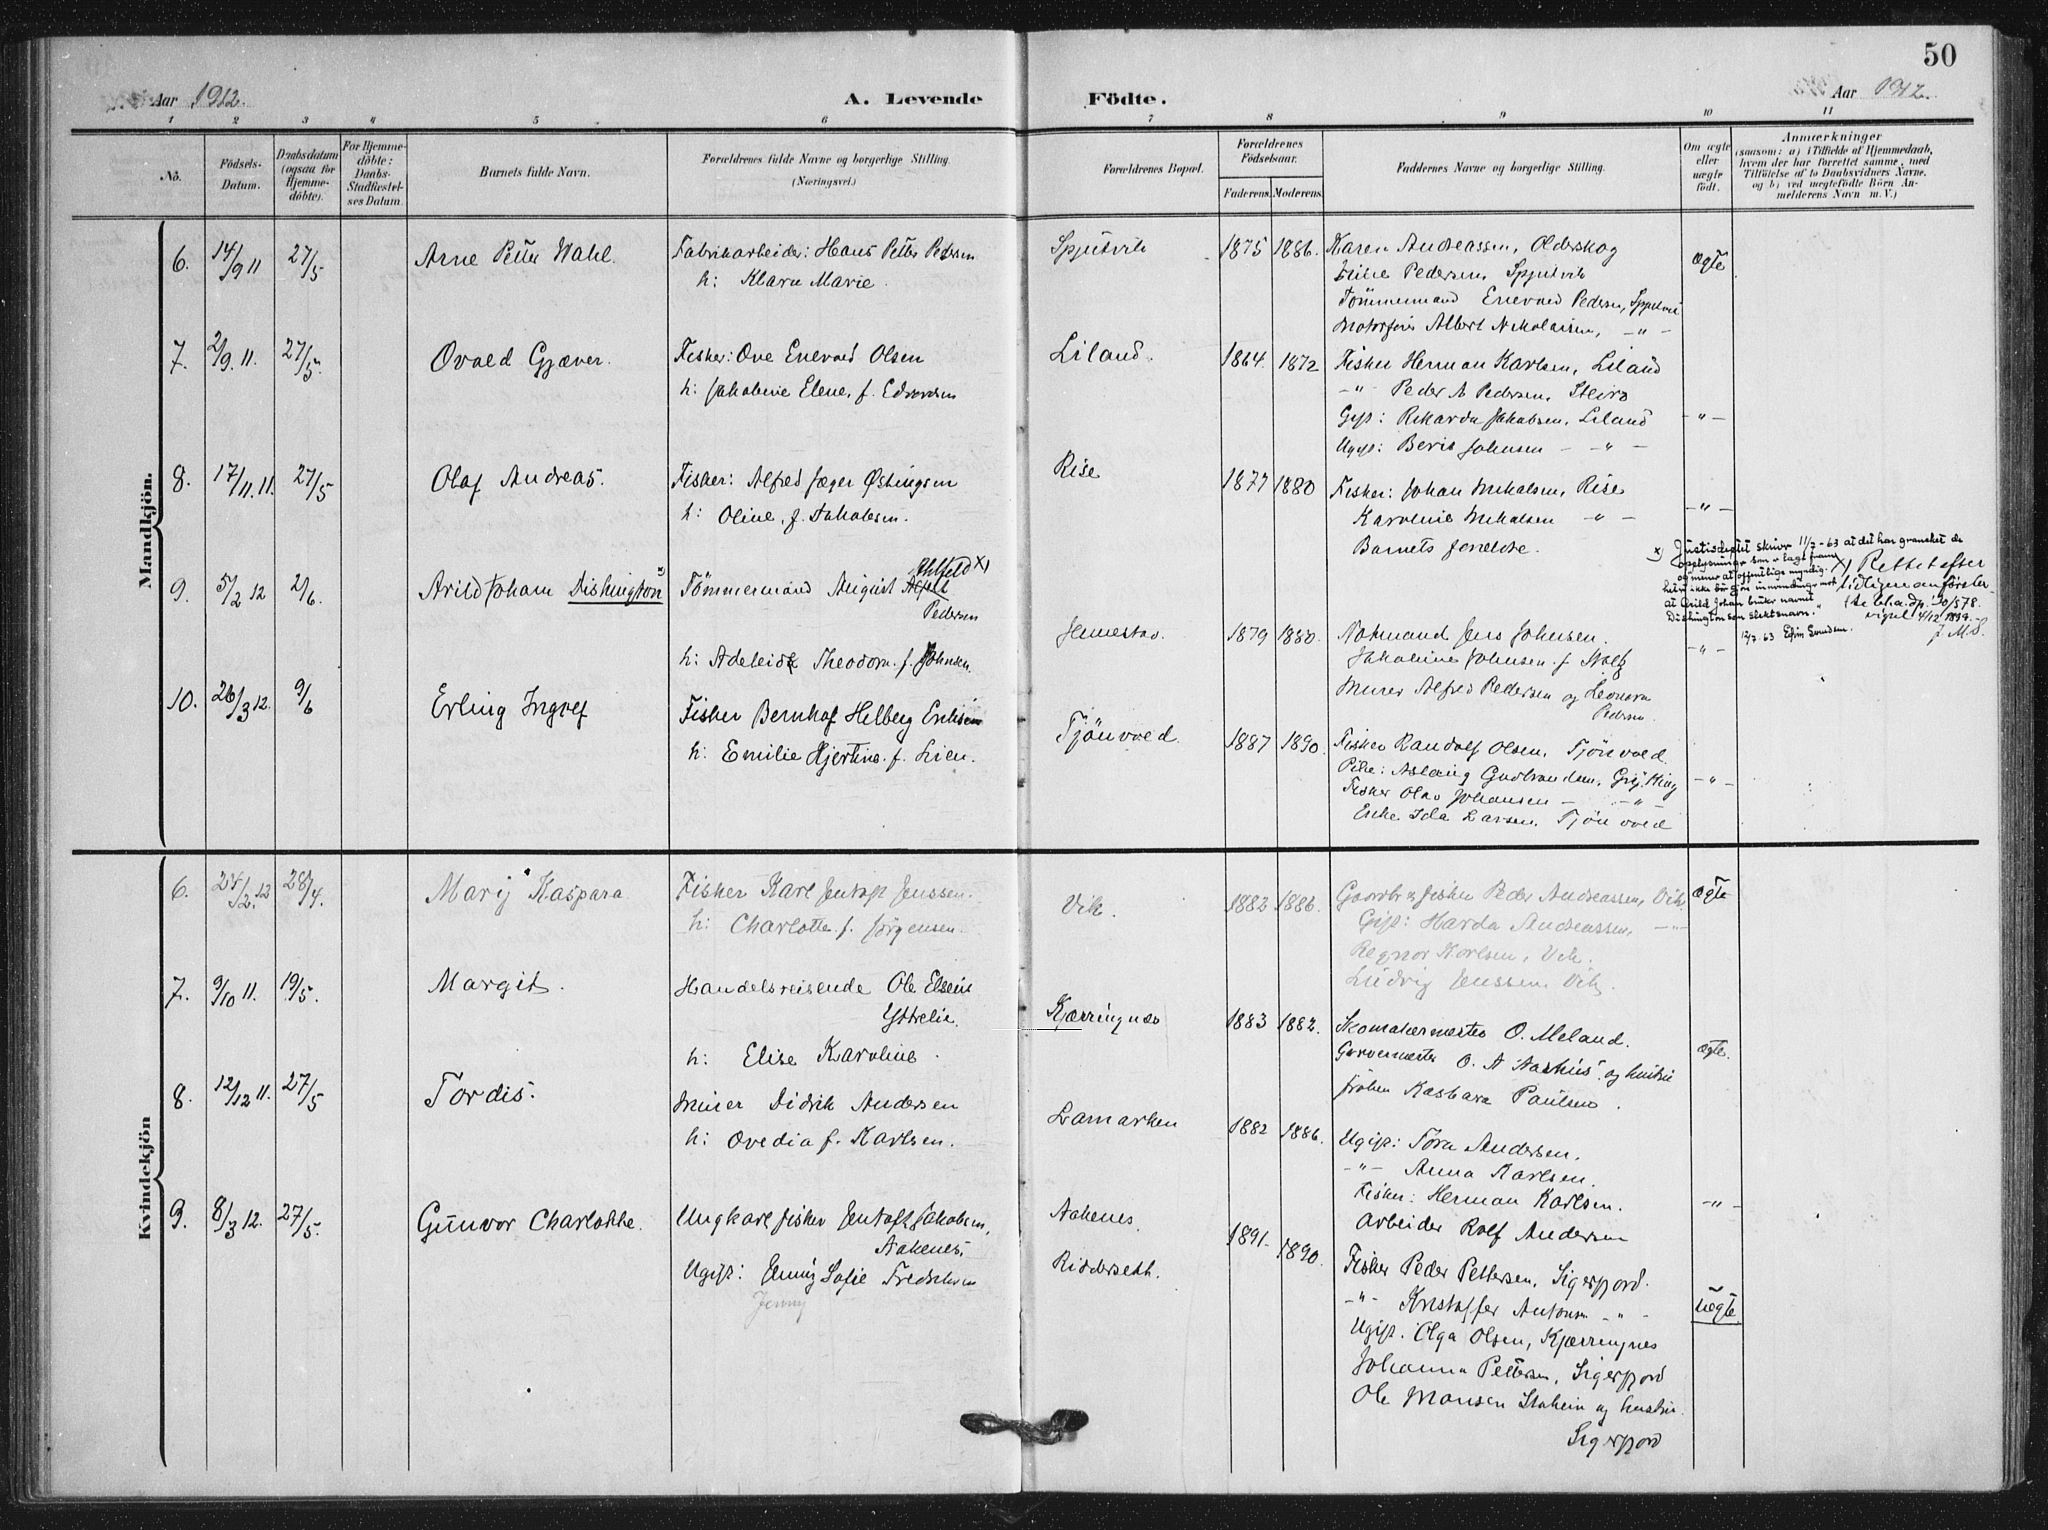 50
Aar 1912.
A. Levende
Födte.
Aar 1912.
1 2 3 4 5 6 7 8 9 10 11
No.
Födsels-Datum.
Daabsdatum (ogsaa for Hjemmedöbte).
For Hjemmedöbte: Daabs-Stadfæstelses Datum.
Barnets fulde Navn.
Forældrenes fulde Navne og borgerlige Stilling.
(Næringsvei.)
Forældrenes Bopæl.
Forældrenes Födselsaar.
Faderens. Moderens.
Faddernes Navne og borgerlige Stilling.
Om ægte eller uægte födt.
Anmærkninger
(saasom: a) i Tilfælde af Hjemmedaab,
hvem der har forrettet samme, med
Tilföielse af to Daabsvidners Navne.
og b) ved uægtefödte Börn An-
melderens Navn m. V.)
Mandkjön.
6. 14/9 11 27/5 Arne Petter Wahl. Fabrikarbeider: Hans Petter Pedersen
h: Klara Marie.
Spjutvik 1875 1886. Karen Andreassen, Olderskog ægte
Pedersen, Spjutvik
Tömmermand Enevold Pedersen, Spjutvik
Motorförer Albert Nikolaisen, -"-
7. 2/9. 11. 27/5. Ovald Gjæver. Fisker: Ove Enevold Olsen
h: Jakobine Elene, f. Edvardsen
Liland. 1864. 1872 Fisker Herman Karlsen, Liland
-"- Peder A Pedersen, Steiro
Gift: Rikarda Jakobsen, Liland -"-
Ugift: Berit Johnsen -"-
8. 17/11. 11. 27/5 Olaf Andreas. Fisker: Alfred Jæger Østingsen
h: Oline, f. Jakobsen.
Rise 1877 1880 Fisker: Johan Mikalsen, Rise
Karoline Mikalsen -"- -"-
Barnets forældre.
9. 5/2 12 2/6. Arild Johan Dishington x) Tömmermand August Pedersen
Ahlfeld x)
h: Adeleide Theodora f. Johnsen.
Hemestad. 1879 1880. Notmand Jens Johnsen. -"-
Jakobine Johnsen f.
Murer Alfred Pedersen og Leonora
Pedersen.
x) Justisdeptet skriver 11/7-63 at det har gransket de
opplysninger som er lagt fram
og mener at offentlige myndig-
heter ikke bör gjöre innvendinger mot
at Arild Johan bruker navnet
Dishington som slektsnavn."
12/7. 63 Edvin Svendsen.
x) Rettet efter
10. 26/3 12. 9/6 Erling Ingolf Fisker Bernhof Helberg Eriksen
h: Emilie Hjertine f. Lien.
Tjönvold. 1887 1890. Fisker Randolf Olsen, Tjönvold.
Pike: Aslaug Gudbrandsen,
Fisker Olav Johansen -"- -"-
Enke Ida Larsen, Tjönvold
Kvindekjön
6. 24/2. 12 28/4. Mary Kaspara Fisker Karl Jentoft Jenssen.
h: Charlotte f. Jörgensen.
Vik. 1882 1886. Gaardbr. og fisker Peder Andreassen, Vik. ægte
Gift: Harda Andreassen, -"-
Ragnar Karlsen, Vik.
Ludvig Jenssen Vik.
7. 9/10 11. 19/5. Margit. Handelsreisende Ole Elseus
Yttrelie.
h: Elise Karoline.
Kjærringnes 1883 1882. Skomakermester O. Meland.
Garvermester O. A Aarhus og hustru ægte.
fröken Kasbara Paulsen.
8. 12/12 11. 27/5 Tordis. Murer Didrik Andersen
h: Ovedia f. Karlsen.
Lamarken 1882 1886. Ugift: Tora Andersen.
-"- Anna Karlsen.
Fisker: Herman Karlsen. -"-
Arbeider Rolf Andersen
9. 8/3 12. 27/5. Gunvor Charlotte. Ungkarl fisker Jentoft Jakobsen,
Aakenes.
Ugift: Jenny Sofie Fredriksen
Jenny
Aakenes.
Ridderseth.
1891. 1890. Fisker Peder Pettersen, Sigerfjord.
-"- Kristoffer Antonsen -"- uægte.
Ugift. Olga Olsen, Kjærringnes
Johanna Pettersen, Sigerfjord
Ole Monsen Stokein og hustru.
Sigerfjord